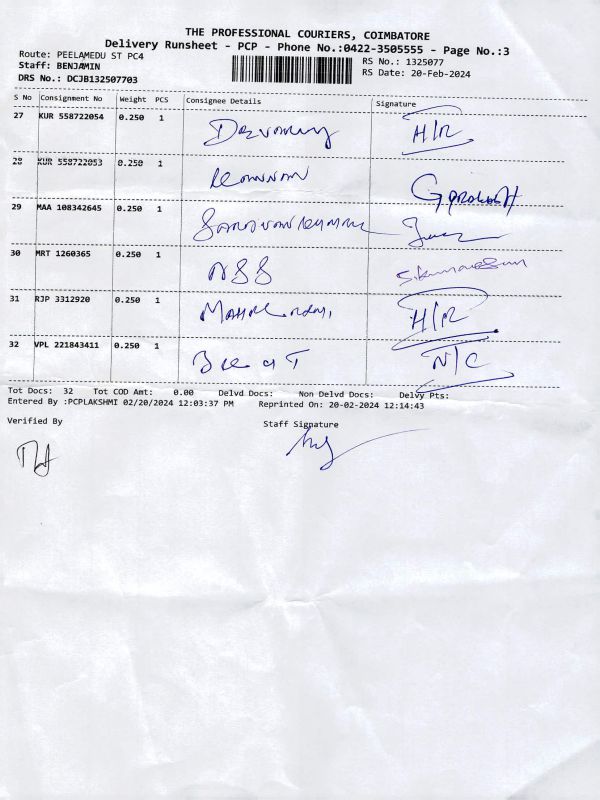 THE PROFESSIONAL COURIERS, COIMBATORE
Delivery Runsheet - PCP - Phone No.:0422-3505555 - Page No.:3
Route: PEELAMEDU ST PC4
RS No.: 1325077
Staff: BENJAMIN
RS Date: 20-Feb-2024
DRS No.: DCJB132507703
S No Consignment No Weight PCS Consignee Details Signature
27 KUR 558722054 0.250 1 H/R
28 KUR 558722053 0.250 1 Kannan
29 MAA 108342645 0.250 1
30 MRT 1260365 0.250 1
31 RJP 3312920 0.250 1 H/R
32 VPL 221843411 0.250 1 N/C
Tot Docs: 32 Tot COD Amt: 0.00 Delvd Docs: Non Delvd Docs: Delvy Pts:
Entered By :PCPLAKSHMI 02/20/2024 12:03:37 PM Reprinted On: 20-02-2024 12:14:43
Verified By Staff Signature